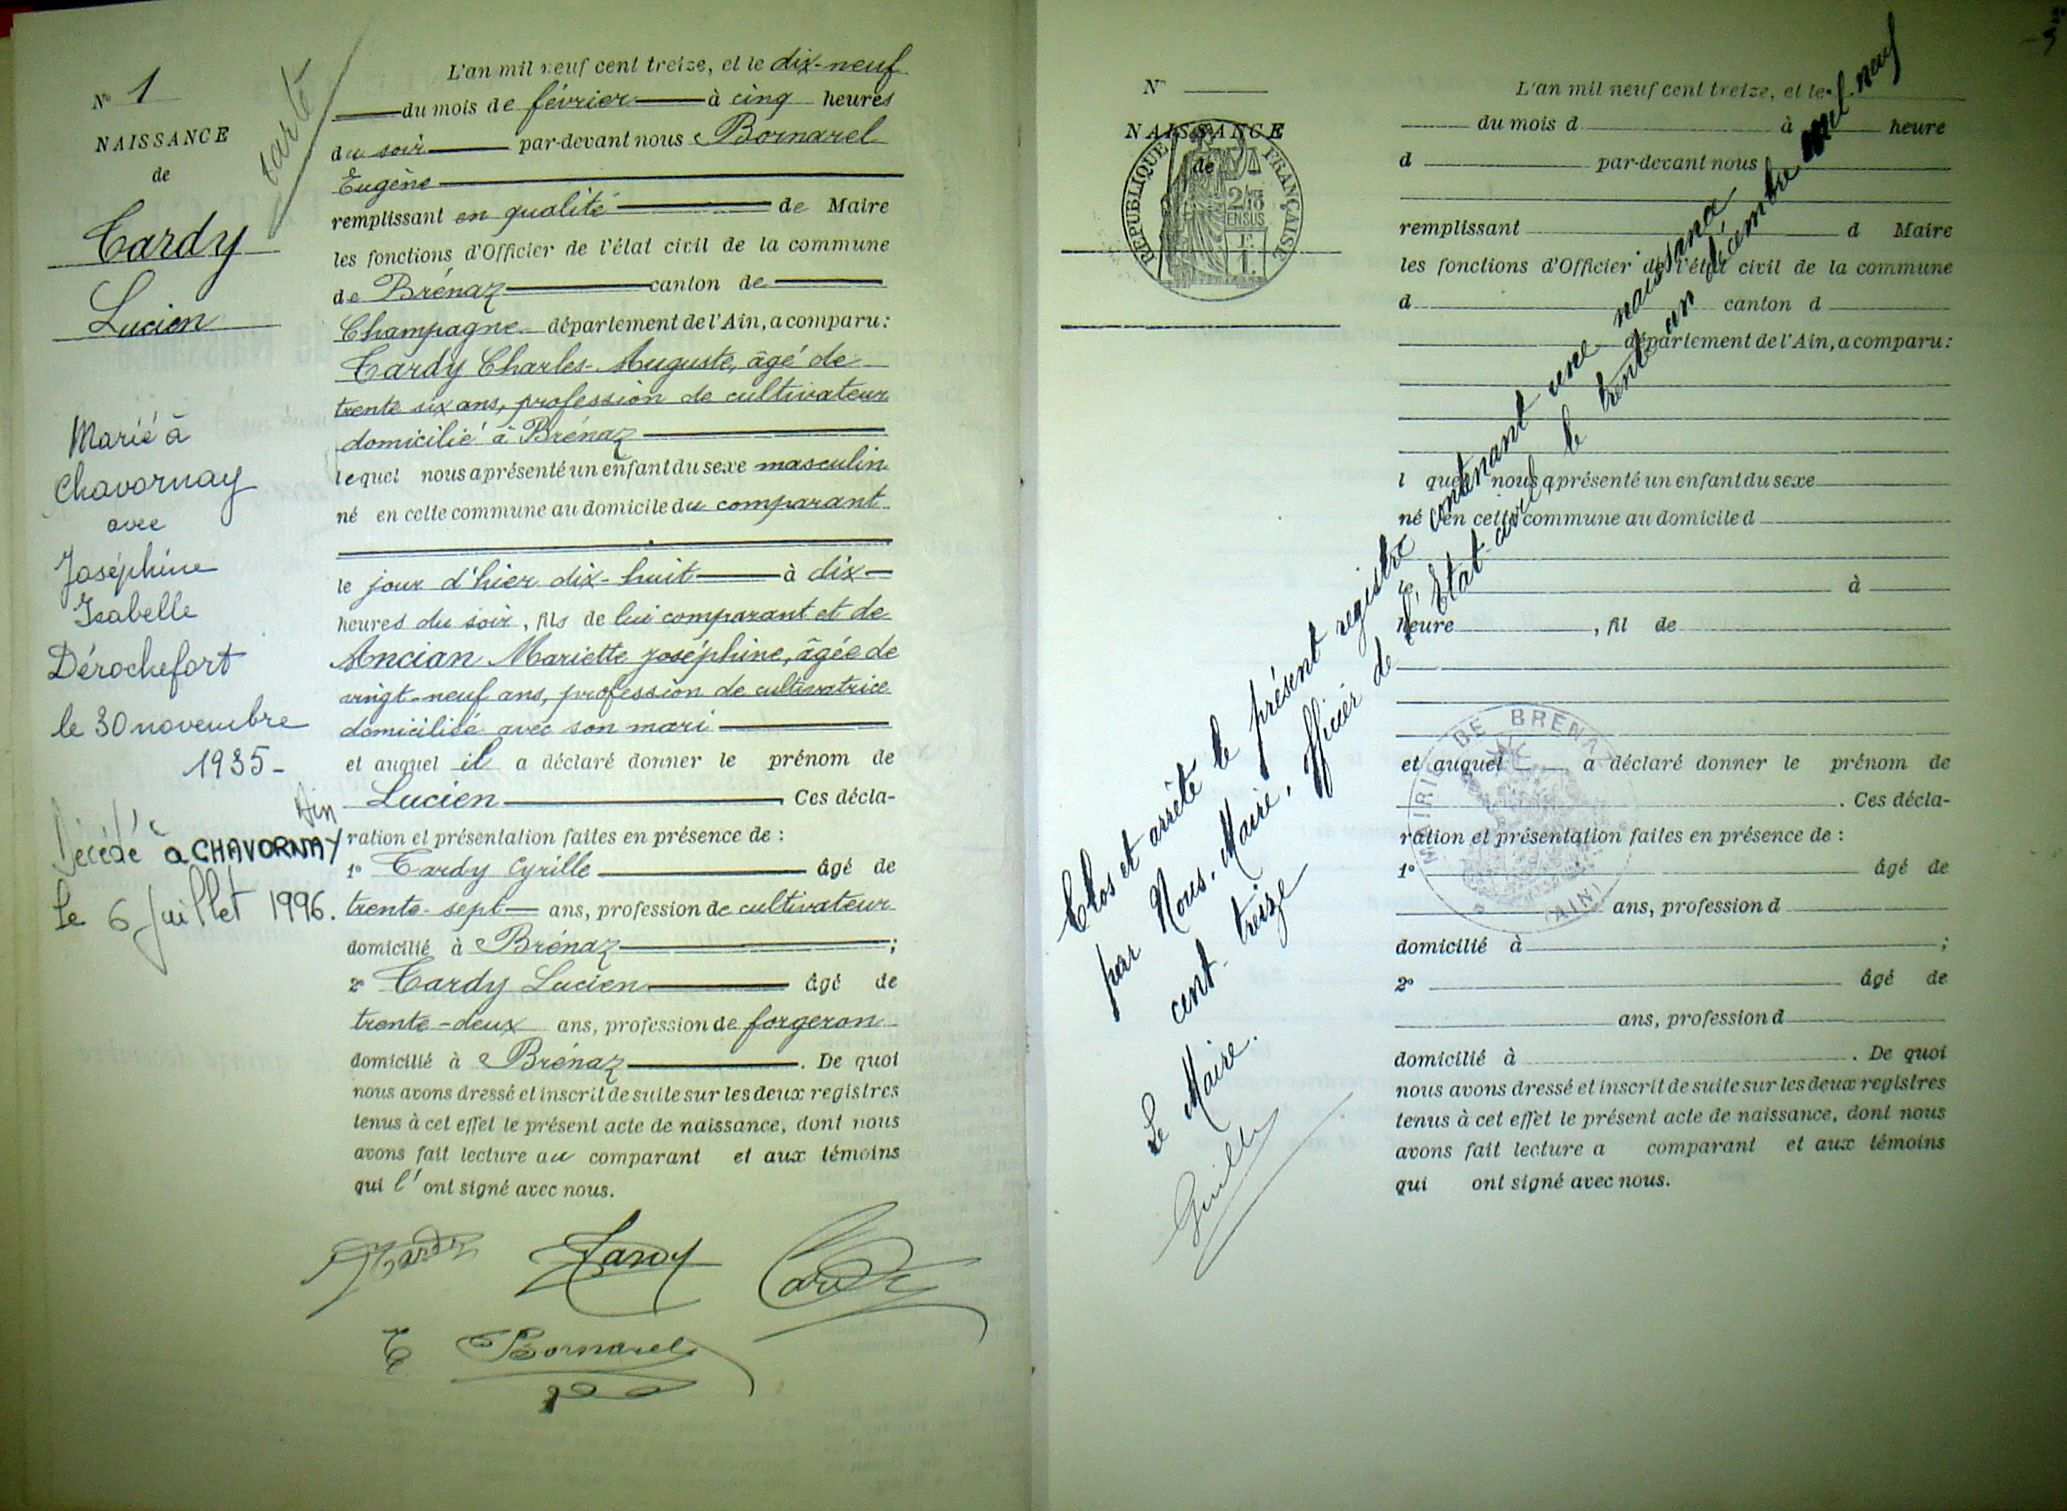 N° 1
NAISSANCE
de
Tardy
Lucien
carte
Marié à
Chavornay
avec
Joséphine
Isabelle
Dérochefort
le 30 novembre
1935 -
Ain
Décédé à CHAVORNAY
Le 6 Juillet 1996.
L'an mil neuf cent treize, et le dix-neuf
du mois de février à cinq heures
du soir par-devant nous Bornarel
Eugène
remplissant en qualité de Maire
les fonctions d'Officier de l'état civil de la commune
de Brénaz canton de
Champagne département de l'Ain, a comparu :
Tardy Charles-Auguste, âgé de
trente six ans, profession de cultivateur
domicilié à Brénaz
lequel nous a présenté un enfant du sexe masculin
né en cette commune au domicile du comparant
le jour d'hier dix-huit à dix
heures du soir, fils de lui comparant et de
Ancian Mariette Joséphine, âgée de
vingt-neuf ans, profession de cultivatrice
domiciliée avec son mari
et auquel il a déclaré donner le prénom de
Lucien Ces décla-
ration et présentation faites en présence de :
1° Tardy Cyrille âgé de
trente-sept ans, profession de cultivateur
domicilié à Brénaz ;
2° Tardy Lucien âgé de
trente-deux ans, profession de forgeron
domicilié à Brénaz . De quoi
nous avons dressé et inscrit de suite sur les deux registres
tenus à cet effet le présent acte de naissance, dont nous
avons fait lecture au comparant et aux témoins
qui l'ont signé avec nous.
Tardy Tardy Tardy
E Bornarel
N°
NAISSANCE
de
RÉPUBLIQUE FRANÇAISE
2/10
EN SUS
L'an mil neuf cent treize, et le
du mois d à heure
d par-devant nous
remplissant d Maire
les fonctions d'Officier de l'état civil de la commune
d canton d
département de l'Ain, a comparu :
l quel nous a présenté un enfant du sexe
né en cette commune au domicile d
le à
heure , fil de
et auquel a déclaré donner le prénom de
. Ces décla-
ration et présentation faites en présence de :
1° âgé de
ans, profession d
domicilié à ;
2° âgé de
ans, profession d
domicilié à . De quoi
nous avons dressé et inscrit de suite sur les deux registres
tenus à cet effet le présent acte de naissance, dont nous
avons fait lecture a comparant et aux témoins
qui ont signé avec nous.
MAIRIE DE BRENAZ
(AIN)
Clos et arrêté le présent registre contenant une naissance
par Nous, Maire, officier de l'Etat-civil le trente un décembre mil neuf
cent treize
Le Maire.